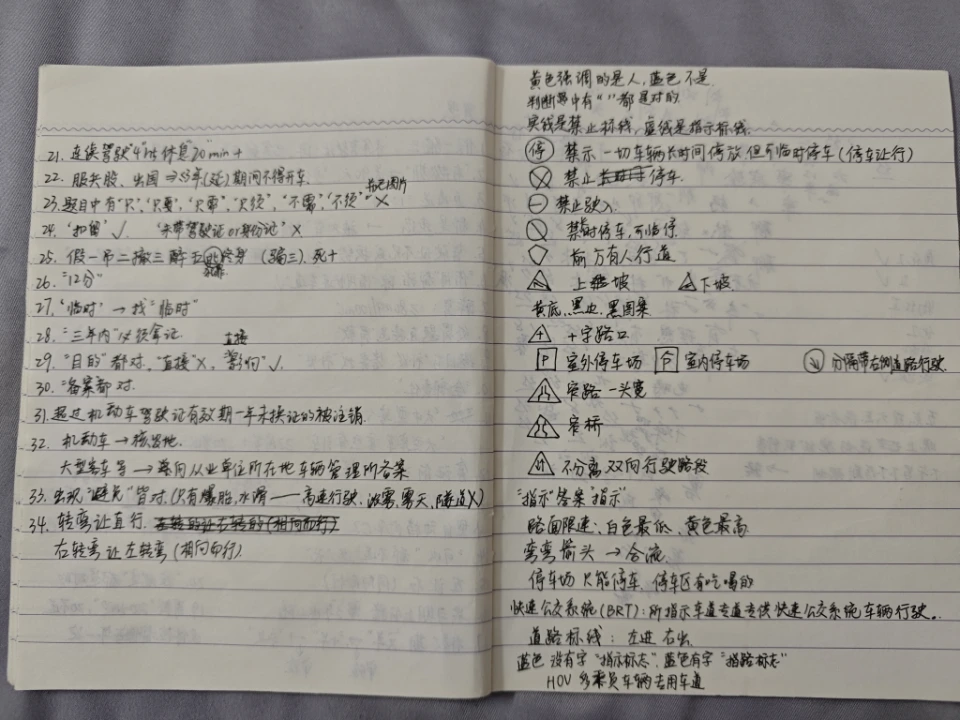 21. 连续驾驶"4"h 休息"20"min +
22. 服兵役、出国 → 3年(延)期间不得开车.
23. 题目中有"只","只要","只需","只须","不需","不须" X
24. "扣留" ✓. "未带驾驶证or身份证" X
25. 假一吊二撤三醉五 终身 (骗三). 死十
26. "12分"
27. "临时" → 找"临时"
28. "三年内"
29. "目的"都对. "直接"X. "影响"✓.
直接
30. 备案都对.
31. 超过机动车驾驶证有效期一年未换证的被注销.
32. 机动车 → 核发地.
大型客车等 → 要向从业单位所在地车辆管理所备案
33. 出现"避免"皆对.(只有爆胎、水滑——高速行驶,浓雾,雾天,隧道X)
34. 转弯让直行.
右转弯让左转弯(相向而行).
黄色强调的是人,蓝色不是.
判断题中有" "都是对的.
实线是禁止标线,虚线是指示标线.
停 禁示一切车辆长时间停放但可临时停车(停车让行)
禁止停车.
禁止驶入.
禁时停车,可临停
前方有人行道
上坡 下坡.
黄底、黑边、黑图案
十字路口
P 室外停车场 P 室内停车场 分隔带右侧道路行驶.
窄路 一头宽
窄桥
不分离双向行驶路段
"指示"答案"指示"
路面限速:白色最低、黄色最高
弯弯箭头 → 合流.
停车场只能停车,停车区有吃喝的
快速公交系统(BRT):所指示车道专道专供快速公交系统车辆行驶.
道路标线:左进右出
蓝色没有字"指示标志". 蓝色有字"指路标志"
HOV 多乘员车辆专用车道